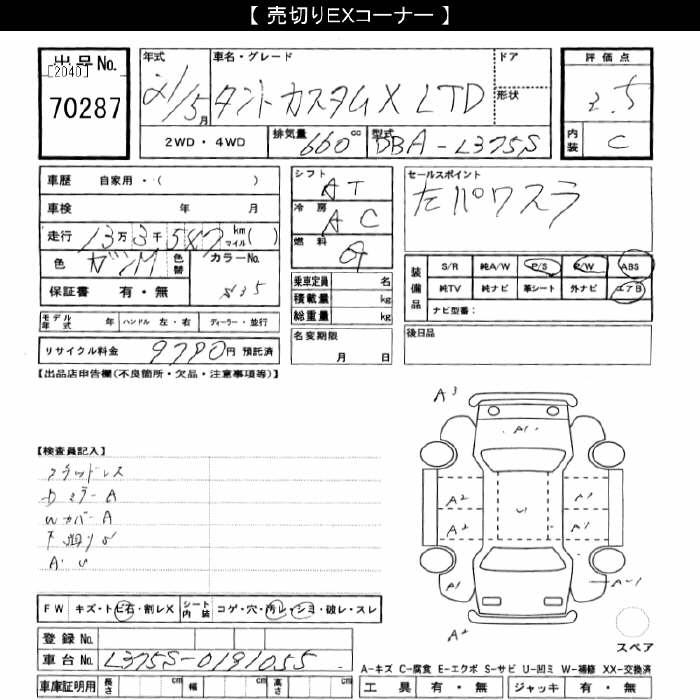 【 売切りEXコーナー 】
出品No.
[2040]
70287
年式 21/5月
車名・グレード タントカスタムX LTD
ドア
形状
評価点
3.5
内装 C
2WD・4WD
排気量 660 cc
型式 DBA-L375S
車歴 自家用・( )
車検 年 月
走行 13万3千547 km マイル( )
色 ガンM 色替 カラーNo.
保証書 有・無 S35
シフト AT
冷房 AC
燃料 G
乗車定員 名
積載量 kg
総重量 kg
名変期限
月 日
セールスポイント
左パワスラ
装備品 S/R 純A/W P/S P/W ABS
純TV 純ナビ 革シート 外ナビ エアB
ナビ型番:
後日品
モデル年式 年 ハンドル 左・右 ディーラー・並行
リサイクル料金 9780円 預託済
【出品店申告欄(不良箇所・欠品・注意事項等)】
【検査員記入】
フラッドレス
Dミラー A
Wカバー A
下廻りS
A・U
A3
A1
A2 A1
U
A2 A1
A1 A-1
A2
スペア
FW キズ・ヒビ石・割レX シート内装 コゲ・穴・汚レ・シミ・破レ・スレ
登録No.
車台No. L375S-0191055
車庫証明用 長さ cm 幅 cm 高さ cm
A-キズ C-腐食 E-エクボ S-サビ U-凹ミ W-補修 XX-交換済
工具 有・無 ジャッキ 有・無